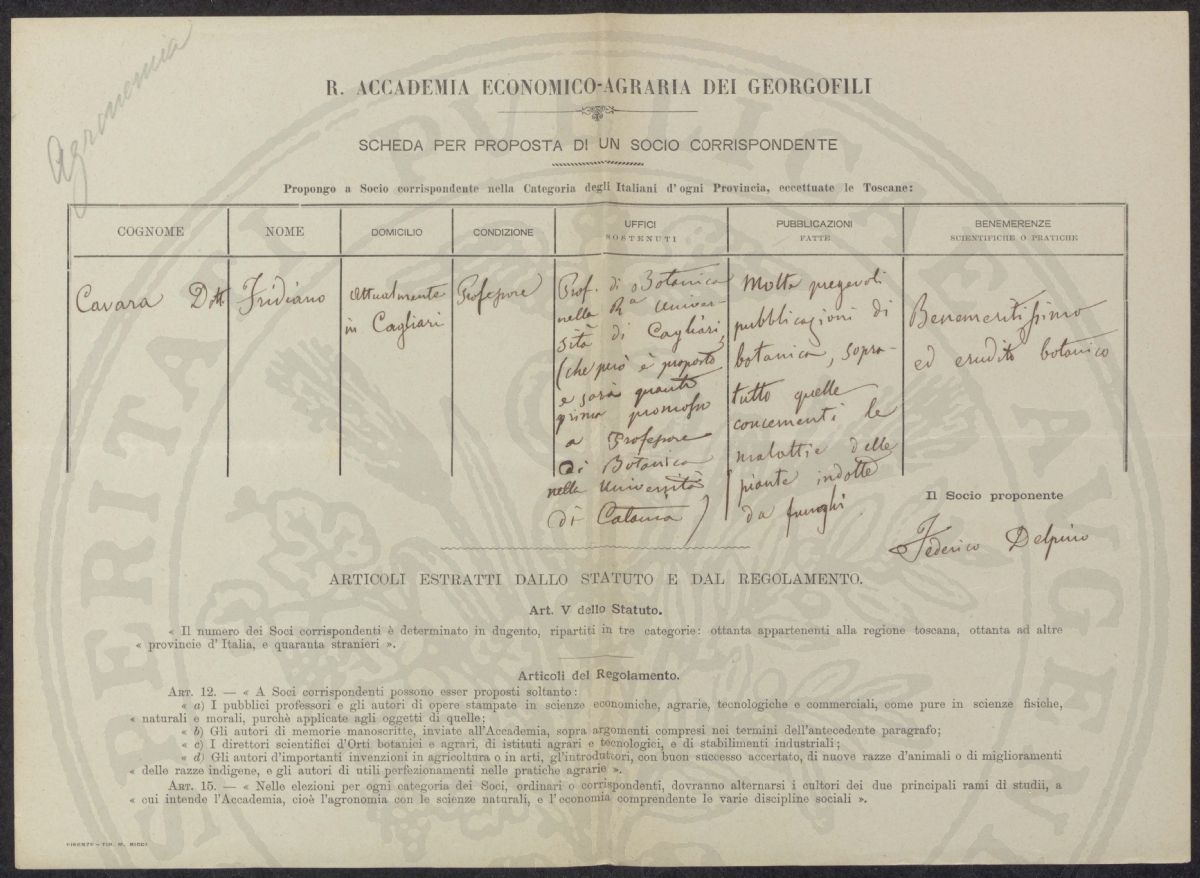 Agronomia
R. ACCADEMIA ECONOMICO-AGRARIA DEI GEORGOFILI
SCHEDA PER PROPOSTA DI UN SOCIO CORRISPONDENTE
Propongo a Socio corrispondente nella Categoria degli Italiani d'ogni Provincia, eccettuate le Toscane:
COGNOME
NOME
DOMICILIO
CONDIZIONE
UFFICI
SOSTENUTI
PUBBLICAZIONI
FATTE
BENEMERENZE
SCIENTIFICHE O PRATICHE
Cavara Dott.
Fridiano
attualmente
in Cagliari
Professore
Prof. di Botanica
nella Ra Univer-
sità di Cagliari,
(che però è proposto
e sarà quanto
prima promosso
a Professore
di Botanica
nella Università
di Catania)
Molte pregevoli
pubblicazioni di
botanica, sopra-
tutto quelle
concernenti le
malattie delle
piante indotte
da funghi.
Benemeritissimo
ed erudito botanico
Il Socio proponente
Federico Delpino
ARTICOLI ESTRATTI DALLO STATUTO E DAL REGOLAMENTO.
Art. V dello Statuto.
« Il numero dei Soci corrispondenti è determinato in dugento, ripartiti in tre categorie: ottanta appartenenti alla regione toscana, ottanta ad altre
« provincie d'Italia, e quaranta stranieri ».
Articoli del Regolamento.
ART. 12. — « A Soci corrispondenti possono esser proposti soltanto:
« a) I pubblici professori e gli autori di opere stampate in scienze economiche, agrarie, tecnologiche e commerciali, come pure in scienze fisiche,
« naturali e morali, purchè applicate agli oggetti di quelle;
« b) Gli autori di memorie manoscritte, inviate all'Accademia, sopra argomenti compresi nei termini dell'antecedente paragrafo;
« c) I direttori scientifici d'Orti botanici e agrari, di istituti agrari e tecnologici, e di stabilimenti industriali;
« d) Gli autori d'importanti invenzioni in agricoltura o in arti, gl'introduttori, con buon successo accertato, di nuove razze d'animali o di miglioramenti
« delle razze indigene, e gli autori di utili perfezionamenti nelle pratiche agrarie ».
ART. 15. — « Nelle elezioni per ogni categoria dei Soci, ordinari o corrispondenti, dovranno alternarsi i cultori dei due principali rami di studii, a
« cui intende l'Accademia, cioè l'agronomia con le scienze naturali, e l'economia comprendente le varie discipline sociali ».
FIRENZE - TIP. M. RICCI
PROSPERITATI PUBLICAE AUGENDAE